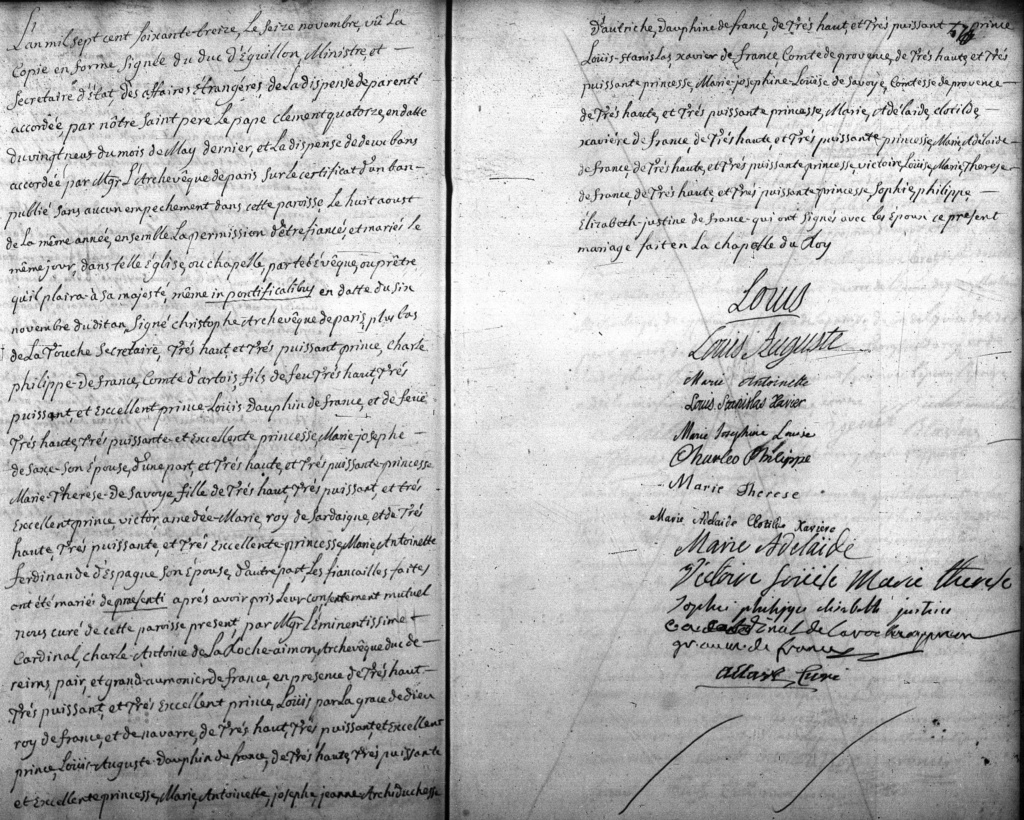 L'an mil sept cent soixante-treize, le seize novembre, vû La
Copie en forme Signée du duc d'Eguillon, Ministre, et
Secretaire d'état des affaires étrangéres, de La dispense de parenté
accordée par nôtre Saint pere Le pape clement quatorze, en datte
du vingt neuf du mois de May dernier, et La dispense de deux bans
accordée par Mgr L'Archevêque de paris sur le certificat d'un ban
publié sans aucun empechement dans cette paroisse le huit aoust
de la même année, ensemble La permission d'être fiancés, et mariés le
même jour, dans telle Eglise, ou chapelle, par tel Evêque, ou prêtre
qu'il plaira à sa majesté, même in pontificalibus en datte du six
novembre du dit an, Signé christophe Archevêque de paris, plus bas
de La Touche Secretaire, Trés haut, et Trés puissant prince, charle
philippe de france, Comte d'artois, fils de feu Trés haut, Trés
puissant et Excellent prince Loüis dauphin de france, et de feüe
Trés haute, Trés puissante et Excellente princesse, Marie josephe
de saxe son Epouse, d'une part, et Trés haute, et Trés puissante princesse
Marie-Therese de Savoye, fille de Trés haut, Trés puissant, et trés
Excellent prince, victor amedée Marie, roy de sardaigne, et de Trés
haute, Trés puissante, et Trés Excellente princesse Marie Antoinette
ferdinande d'Espagne son Epouse, d'autre part, Les fiancailles faites
ont été mariés de presenti après avoir pris Leur consentement mutuel
nous curé de cette paroisse present, par Mgr L'Eminentissime
Cardinal, charle Antoine de La Roche-aimon, Archevêque duc de
reims, pair, et grand aumonier de france, en presence de Trés haut
Trés puissant, et Trés Excellent prince, Loüis par La grace de dieu
roy de france, et de navarre, de Trés haut, Trés puissant, et Excellent
prince, Loüis-Auguste dauphin de france, de Trés haute, Trés puissante
et Excellente princesse, Marie, Antoinette, josephe, jeanne Archiduchesse
D'autriche, Dauphine de france, de Trés haut et Trés puissant prince
Loüis-stanislas xavier de france Comte de provence, de Trés haute, et Trés
puissante princesse, Marie-josephine-Loüise de Savoye, Comtesse de provence
de Trés haute, et Trés puissante princesse, Marie, Adelaide, clotilde,
xaviére de france de Trés haute et Trés puissante princesse, Marie Adelaide
de france de Trés haute, et Trés puissante princesse, victoire, Loüise, Marie, Therese
de france, de Trés haute, et Trés puissante princesse, Sophie, philippe
Elizabeth-justine de france qui ont signés avec les Epoux ce present
mariage fait en La chapelle du Roy
Louis
Louis Auguste
Marie Antoinette
Louis Stanislas Xavier
Marie Josephine Louise
Charles Philippe
Marie Therese
Marie Adelaide Clotilde Xaviere
Marie Adelaïde
Victoire Louise Marie therese
Sophie philippe elisabeth justine
cardinal de la roche aymon
de france
allart Curé